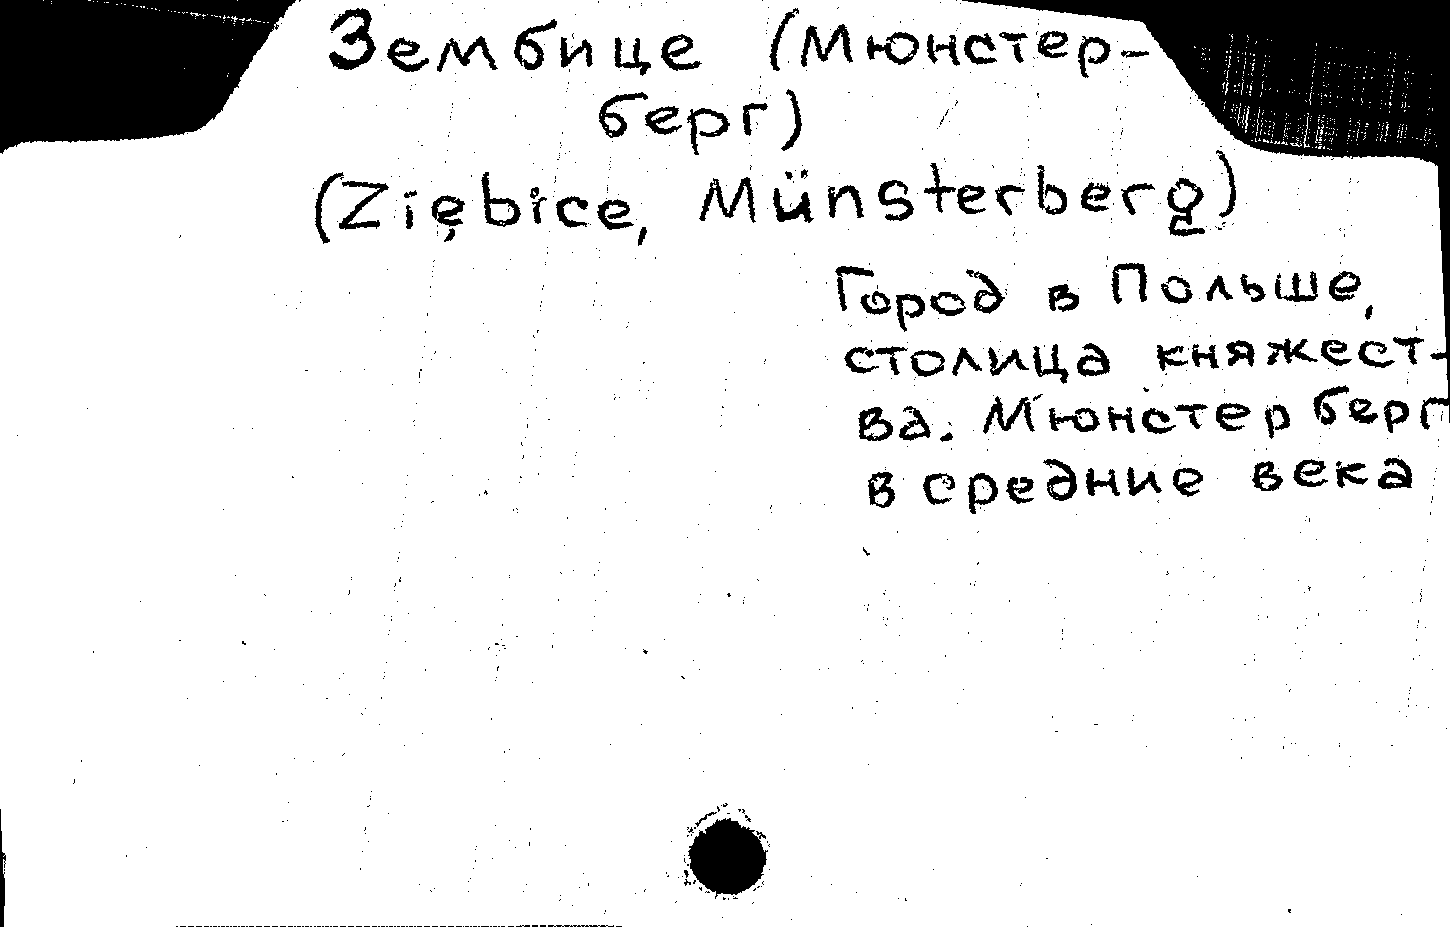 Зембице (Мюнстер-
берг)
(Ziębice, Münsterberg)
Город в Польше,
столица княжест-
ва. Мюнстерберг
в средние века